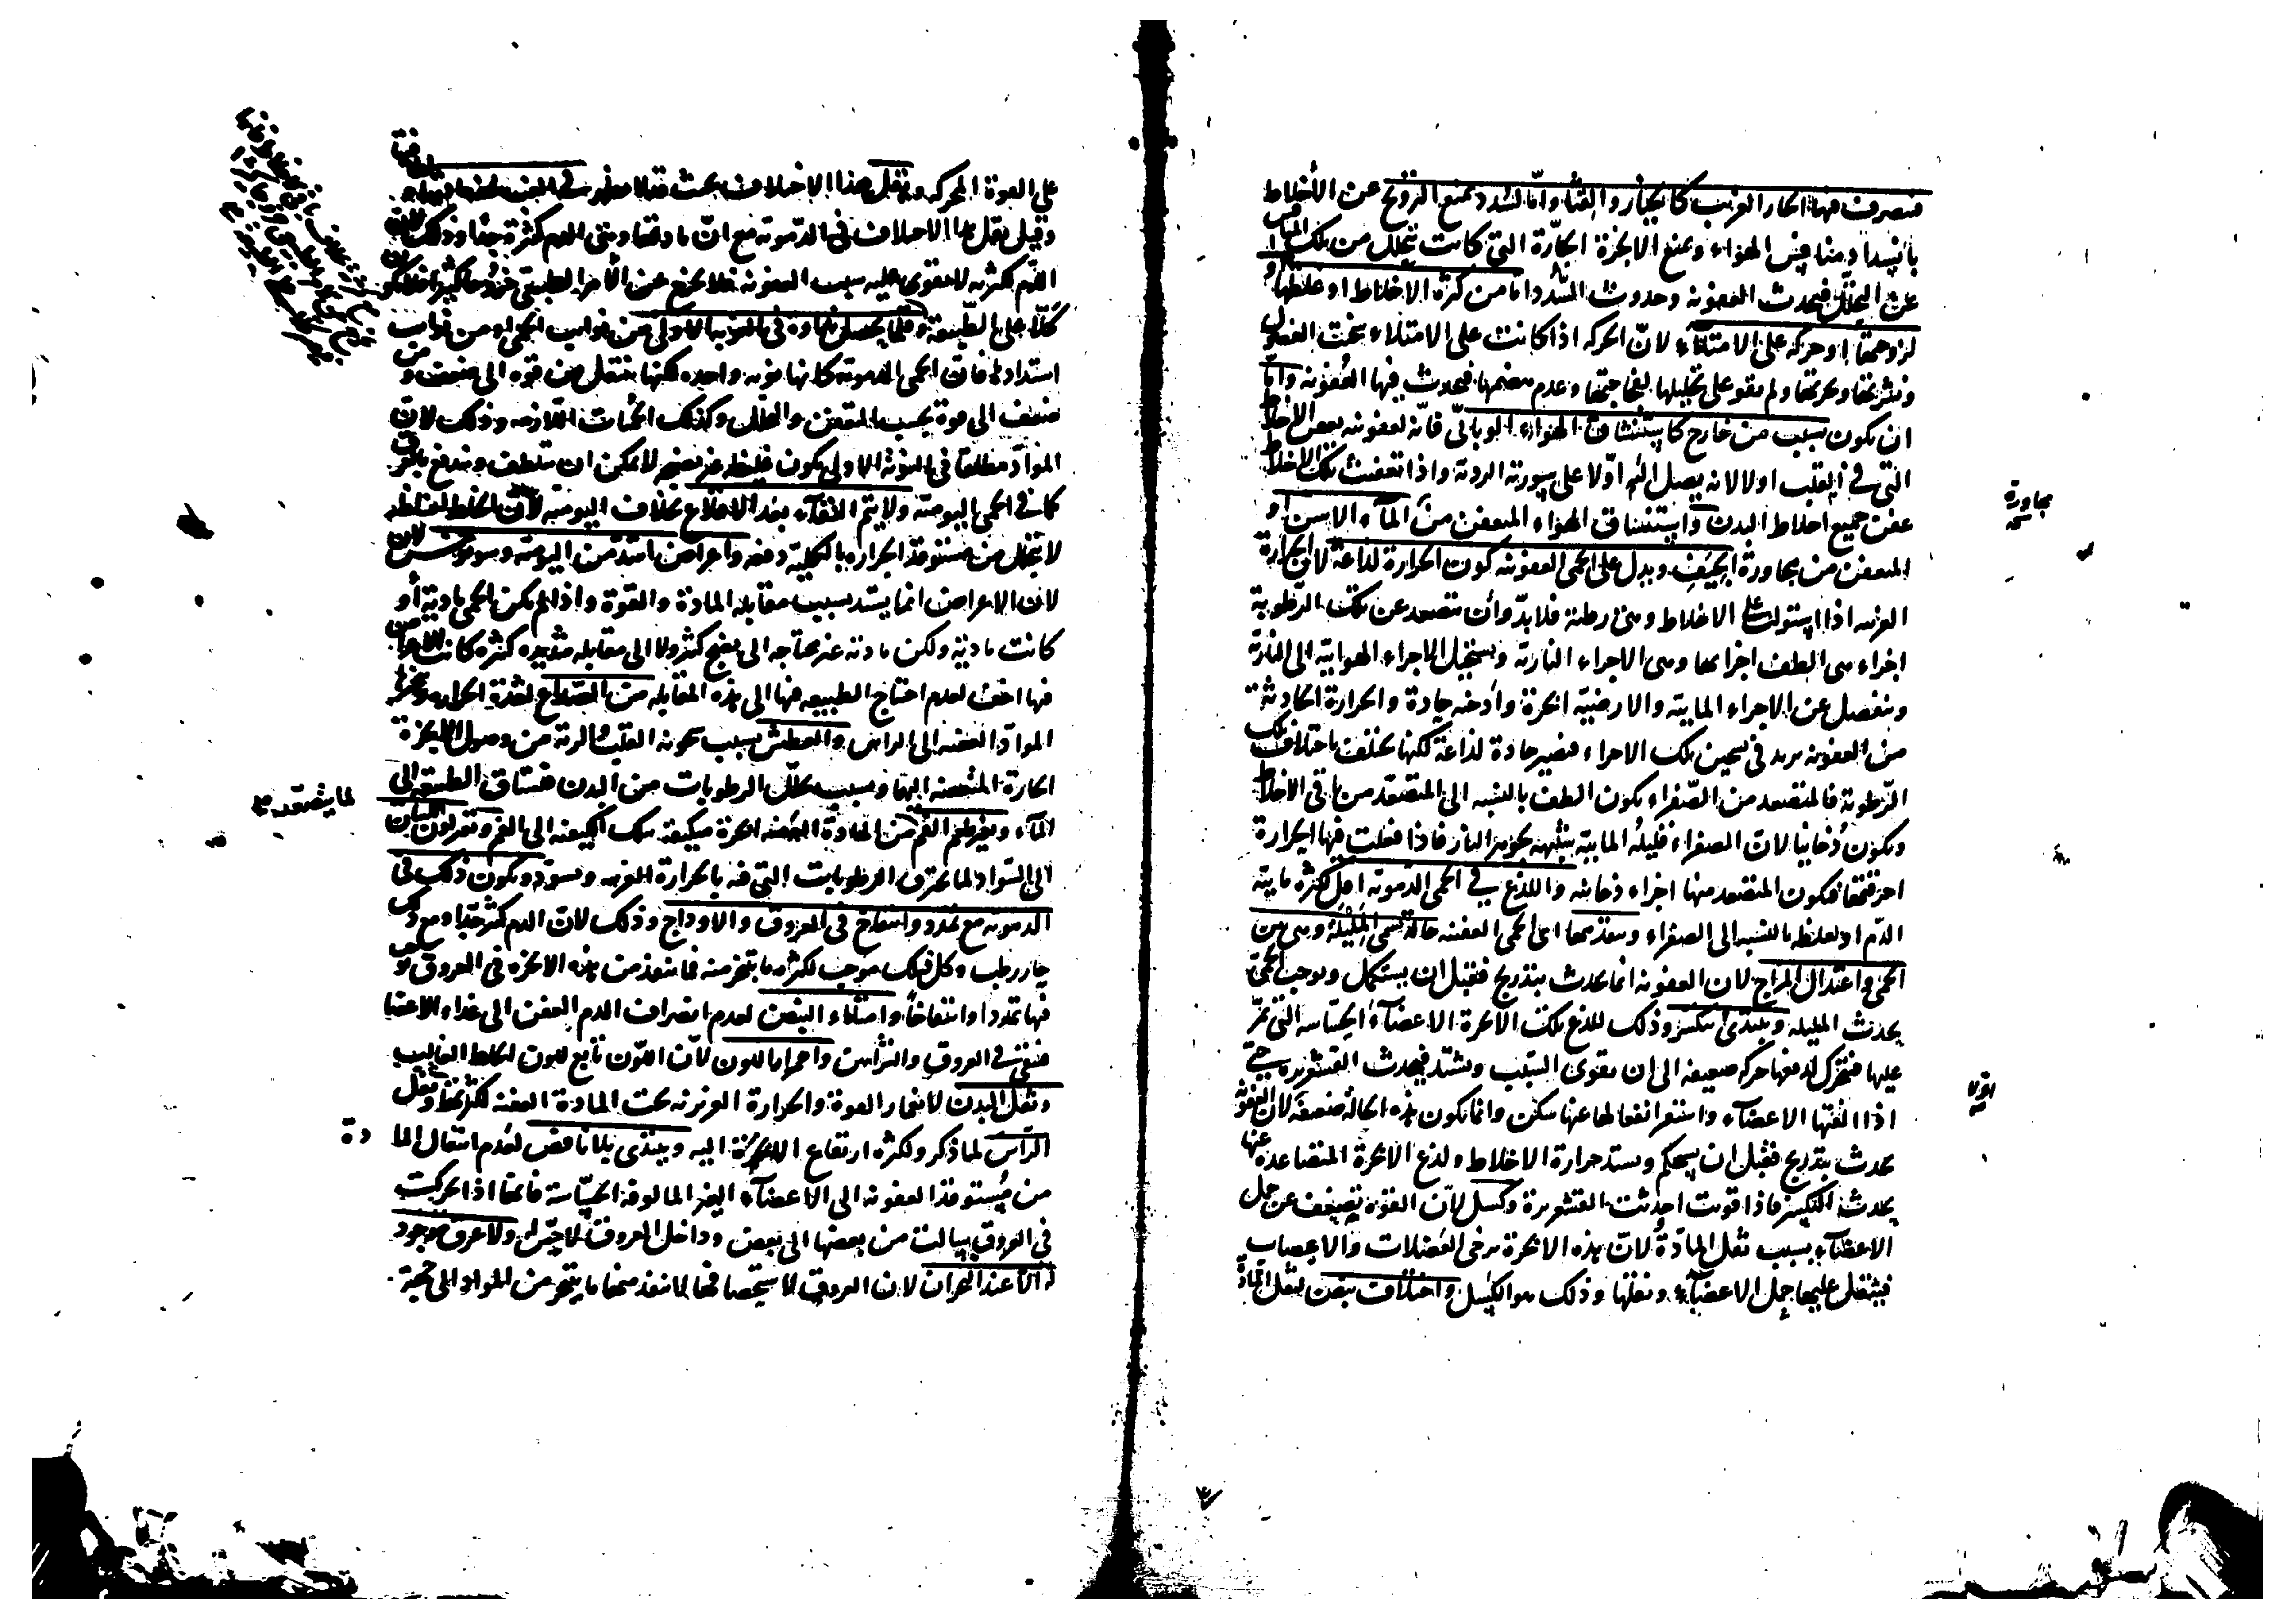 فيتصرف فيها الحار الغريب كالخيار والقثاء واما لسدد تمنع التروّح عن الأخلاط
بانسداد منافس الهواء ويمنع الابخرة الحارّة التي كانت تتحلل من تلك المنافس
عن التحلّل فيحدث العفونه وحدوث السّدد اما من كثرة الاخلاط او غلظها او
لزوجتها او حركه على الامتلاء لانّ الحركه اذا كانت على الامتلاء سخنت الفضول
ونشرتها وحركتها ولم تقو على تحليلها لفجاجتها وعدم هضمها فيحدث فيها العُفونه واما
ان يكون بسبب من خارج كاستنشاق الهواء الوبائي فانّه لعفونته يعفن الاخلاط
التي في القلب اولا لانه يصل اليه اوّلا على سورته الردية واذا تعفنت تلك الاخلاط
عفن جميع اخلاط البدن واستنشاق الهواء المتعفن من المآء الآسن او
المتعفن من مجاورة الجيَف ويدل على الحمى العفونيه كون الحرارة لذاعة لان الحرارة
الغريبه اذا استولت على الاخلاط وهي رطبة فلا بدّ وان تتصعد عن تلك الرطوبة
اجزاء هي الطف اجزائها وهي الاجزاء الناريّة ويستحيل الاجزاء الهوايّة الى الناريّة
وينفصل عن الاجزاء المايّة والارضيّة ابخرة وادخنه حادة والحرارة الحادثة
من العفونه يزيد في تسخين تلك الاجزاء فيصير حادة لذاعة لكنها تختلف باختلاف تلك
الرّطوبة فالمتصعد من الصّفراء يكون الطف بالنسبه الى المتصعد من باقي الاخلاط
ويكون دُخانيا لان الصفراء قليلة المائية شبيهه بجوهر النار فاذا فعلت فيها الحرارة
احرقتها فيكون المتصعد منها اجزاء دخانيه واللذع في الحمى الدموية اقل لكثرة مايّة
الدّم او لغلظه بالنسبه الى الصفراء ويتقدّمها اي الحمى العفنيه حالة تسمى المَلِيْلة وهي بين
الحمى واعتدال المزاج لان العفونه انما يحدث بتدريج فقبل ان يستكمل ويوجب الحمى
يحدث المليله ويبتدئ بتكسّر وذلك للذع تلك الابخرة الاعضاء الحساسه التي تمرّ
عليها فتتحرك لدفعها حركه ضعيفه الى ان يقوى السّبب ويشتد فيحدث القشعريره حتى
اذا الفتها الاعضآء واستقر انفعالها عنها سكن وانما يكون هذه الحالة ضعيفة لان العفونه
يحدث بتدريج فقبل ان يستحكم ويشتد حرارة الاخلاط ولذع الابخرة المتصاعده عنها
يحدث التكسر فاذا قويت احدثت القشعريرة وكسل لانّ القوة يضعف عن حمل
الاعضاء بسبب ثقل المادّة لانّ هذه الابخرة يرخى العضلات والاعصاب
فيثقل عليها حمل الاعضآء ونقلها وذلك هو الكسل واختلاف نبض لثقل المادة
مجاورة
اولا
على القوة المحركه ويقل هذا الاختلاف بحيث
وقيل يقل هذا الاختلاف في الدّموية مع انّ مادتها وهي الدم كثيرة جدا وذلك لان
الدّم لكثرته لا يقوى عليه سبب العفونه فلا يخرج عن الأمر الطبيعي خروجا كثيرا فلا يكون
كَلّا على الطّبيعة وقلما يحصل نقاوه في النوبه الاولى من نوايب الحمى او من نوايب
اشتدادها فان الحمى الدموية كانها نوبه واحده لكنها ينتقل من قوة الى ضعف ومن
ضعف الى قوة بحسب التعفن والتحلل وكذلك الحُمّيات اللازمه وذلك لانّ
الموادّ مطلقا في النوبة الاولى يكون غليظه غير نضجه لا يمكن ان يتلطف ويندفع بالعرق
كما في الحمى اليومية ولا يتم النقاء بعد الاقلاع بخلاف اليومية لان الخلط الغليظ
لا يتحلل من مستوقد الحراره بالكليّة دفعه واعراض اشدّ من اليوميّه
لان الاعراض انما يشتد بسبب مقابله المادّة والقوة واذا لم يكن الحمى ماديّة أو
كانت ماديّة ولكن مادته غير محتاجه الى نضج كثير ولا الى مقابله شديده كثيره كانت الاعراض
فيها اخف لعدم احتياج الطبيعه فيها الى هذه المقابله من الصّداع لشدّة الحراره وتبخر
الموادّ العفنه الى الراس والعطش بسبب سخونه القلب والرئة من وصول الابخرة
الحارة المتعفنه اليها وبسبب تحلل الرطوبات من البدن فتشتاق الطبيعة الى
المآء وتغير طعم الفم من المادة العفنه ابخرة متكيفة بتلك الكيفيه الى الفم وتغير لون اللسان
الى السّواد لما يحترق الرطوبات التي فيه بالحرارة الغريبه ويسوّد ويكون ذلك في
الدمويه مع تمدد وانتفاخ في العروق والاوداج وذلك لانّ الدم كثير جدا ومع ذلك
حار رطب وكل ذلك موجب لكثرة ما يتبخر منه فما ينفذ من هذه الابخره في العروق يوجب
فيها تمددا وانتفاخا وامتلاء النبض لعدم انصراف الدم العفن الى غذاء الاعضا
فيبقى في العروق والشرائين واحمرار اللون لانّ اللّون تابع للون الخلط الغالب
وثقل البدن لانغمار القوة والحرارة الغريزيه تحت المادة العفنه لكثرتها وثقل
الرّأس لما ذكر ولكثرة ارتفاع الابخرة اليه ويبتدى بلا نافض لعَدم انتقال الما دة
من مُستوقد العفونه الى الاعضآء الغير المالوفه الحسّاسة فانها اذا تحركت
في العروق سالت من بعضها الى بعض وداخل العروق لا حسّ له ولا عرق موجود
له الا عند البحران لان العروق لاستحصافها لا ينفذ منها ما يتبخر من المواد الى جهة
لما يتصعد